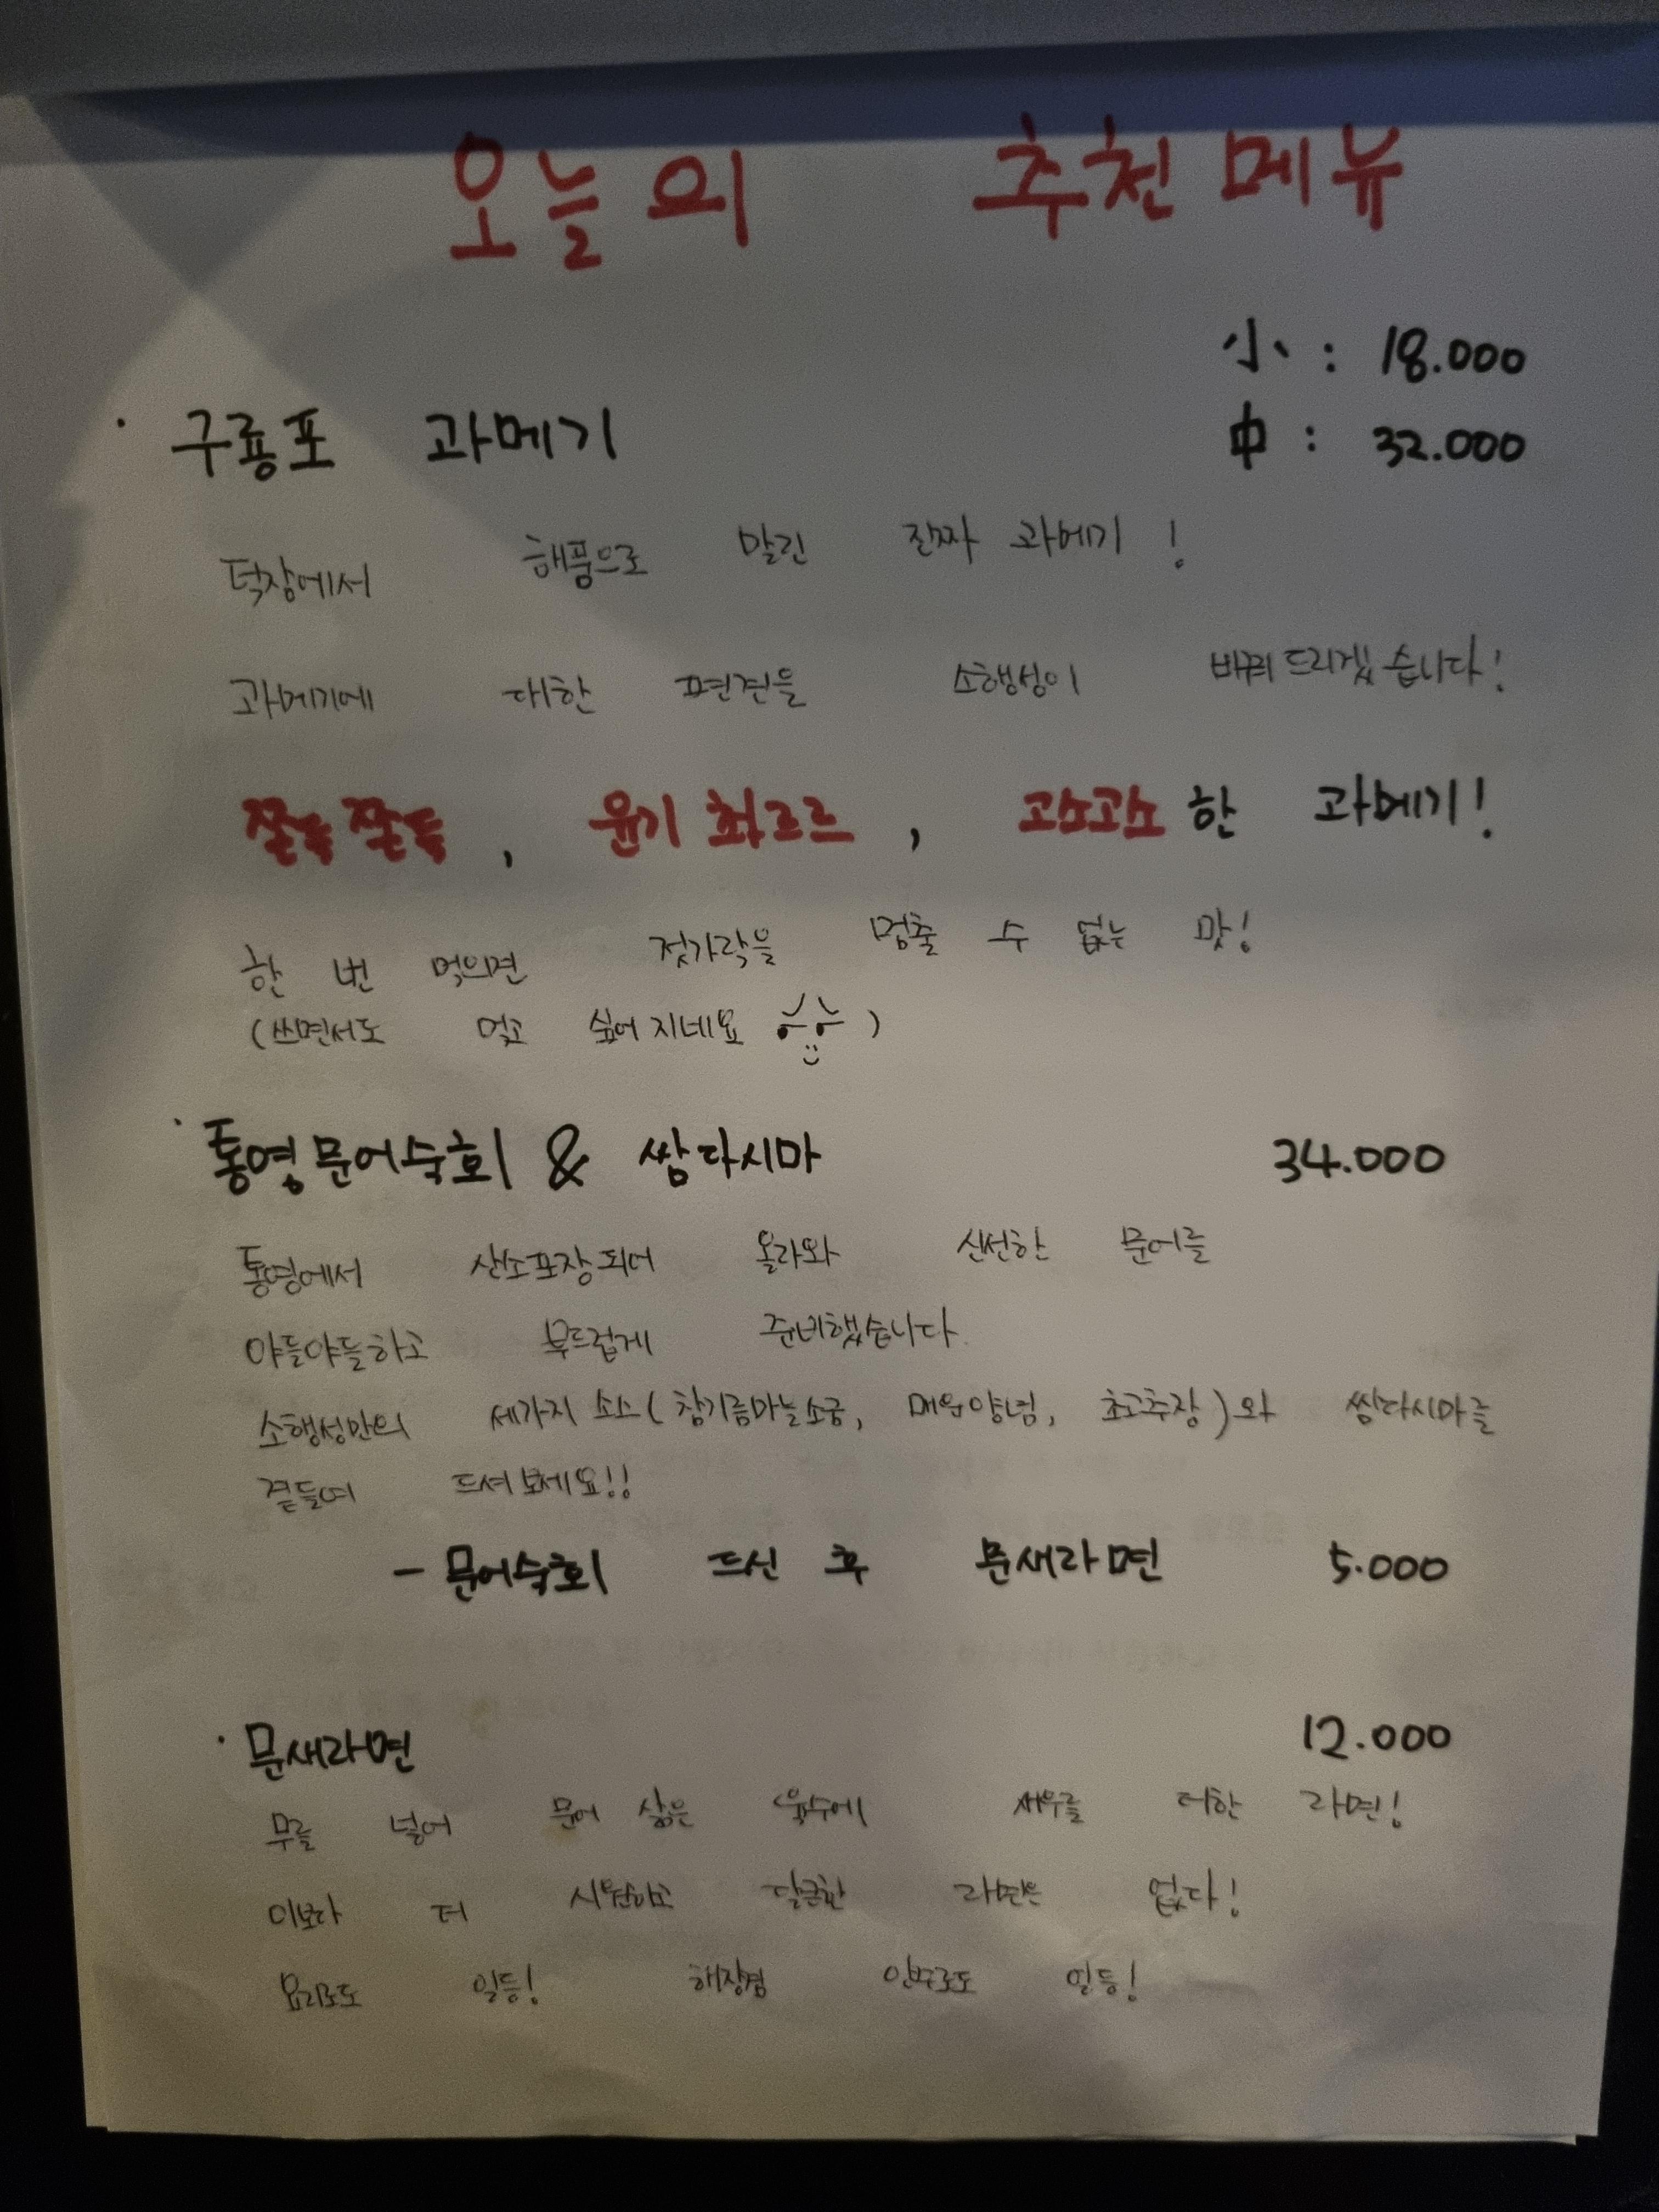 오늘의 추천메뉴
小 : 18.000
· 구룡포 과메기
中 : 32.000
덕장에서 해풍으로 말린 진짜 과메기!
과메기에 대한 편견을 소행성이 바꿔드리겠습니다!
쫀득쫀득, 윤기 촤르르, 고소고소한 과메기!
한 번 먹으면 젓가락을 멈출 수 없는 맛!
(쓰면서도 먹고 싶어지네요)
· 통영문어숙회 & 쌈다시마 34.000
통영에서 산소포장되어 올라와 신선한 문어를
야들야들하고 부드럽게 준비했습니다.
소행성만의 세가지 소스(참기름마늘소금, 매운양념, 초고추장)와 쌈다시마를
곁들여 드셔보세요!!
- 문어숙회 드신 후 문새라면 5.000
· 문새라면 12.000
무를 넣어 문어 삶은 육수에 새우를 더한 라면!
이보다 더 시원하고 달큰한 라면은 없다!
요리로도 일등! 해장겸 안주로도 일등!